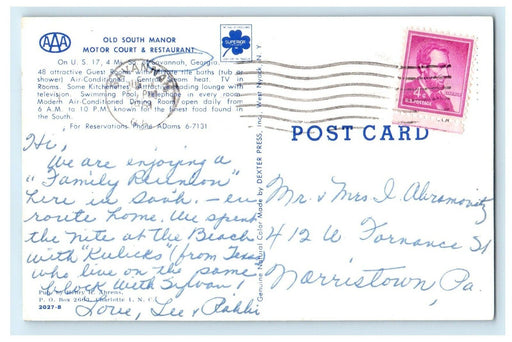 AAA
OLD SOUTH MANOR
MOTOR COURT & RESTAURANT
On U. S. 17, 4 Mi. Savannah, Georgia.
48 attractive Guest with tile baths (tub or
shower) Air-Conditioned Central steam heat. TV in
Rooms. Some Kitchenettes. Attractive reading lounge with
television. Swimming Pool. Telephone in every room.
Modern Air-Conditioned Dining Room open daily from
6 A.M. to 10 P.M. known for the finest food found in
the South.
For Reservations Phone ADams 6-7131
SUPERIOR
SAVANNAH
4¢
U.S. POSTAGE
POST CARD
Genuine Natural Color Made by DEXTER PRESS, Inc., West Nyack, N. Y.
Hi,
We are enjoying a
"Family Reunion"
here in Savh. - en
route home. We spent
the nite at the Beach
with "Kulicks" (from Texas
who live on the same
block with Sylvan!
Love, Lee &
Pub. by Henry H. Ahrens,
P. O. Box Charlotte 1, N. C.
2027-B
Mr. & Mrs I. Abramovitz
412 W Fornance St
Norristown, Pa.